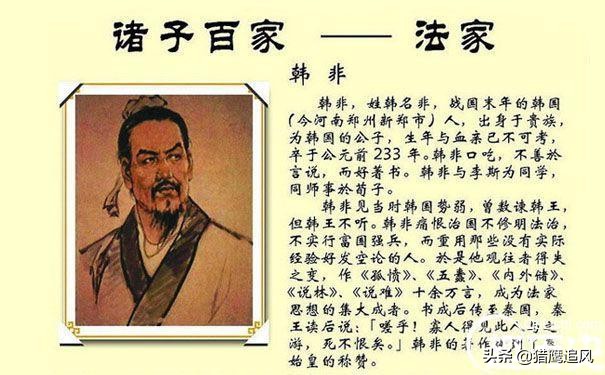 诸子百家 —— 法家
韩 非
韩非，姓韩名非，战国末年的韩国
(今河南郑州新郑市) 人，出身于贵族，
为韩国的公子，生年与血亲已不可考，
卒于公元前 233 年。韩非口吃，不善於
言说，而好著书。韩非与李斯为同学，
同师事於荀子。
韩非见当时韩国势弱，曾数谏韩王，
但韩王不听。韩非痛恨治国不修明法治，
不实行富国强兵，而重用那些没有实际
经验好发空论的人。於是他观往者得失
之变，作《孤愤》、《五蠹》、《内外储》、
《说林》、《说难》十余万言，成为法家
思想的集大成者。书成后传至秦国，秦
王读后说：「嗟乎！寡人得见此人与之
游，死不恨矣。」韩非的著作得到了秦
始皇的称赞。
头条 @猎鹰追风